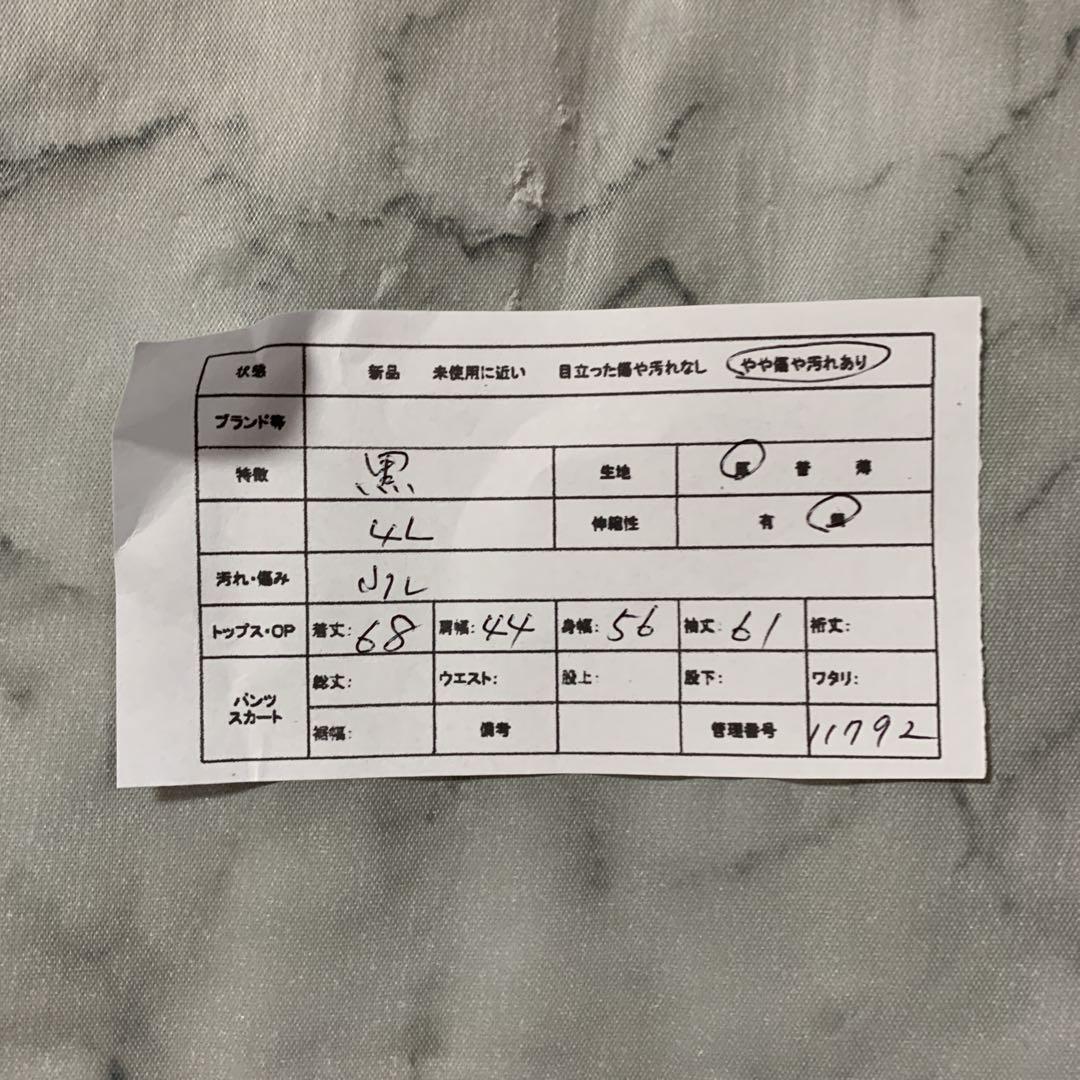 状態 新品 未使用に近い 目立った傷や汚れなし やや傷や汚れあり
ブランド等
特徴 黒 生地 厚 普 薄
4L 伸縮性 有 無
汚れ・傷み 小ｼﾐ
トップス・OP 着丈: 68 肩幅: 44 身幅: 56 袖丈: 61 裄丈:
パンツ スカート 総丈: ウエスト: 股上: 股下: ワタリ:
裾幅: 備考 管理番号 11792